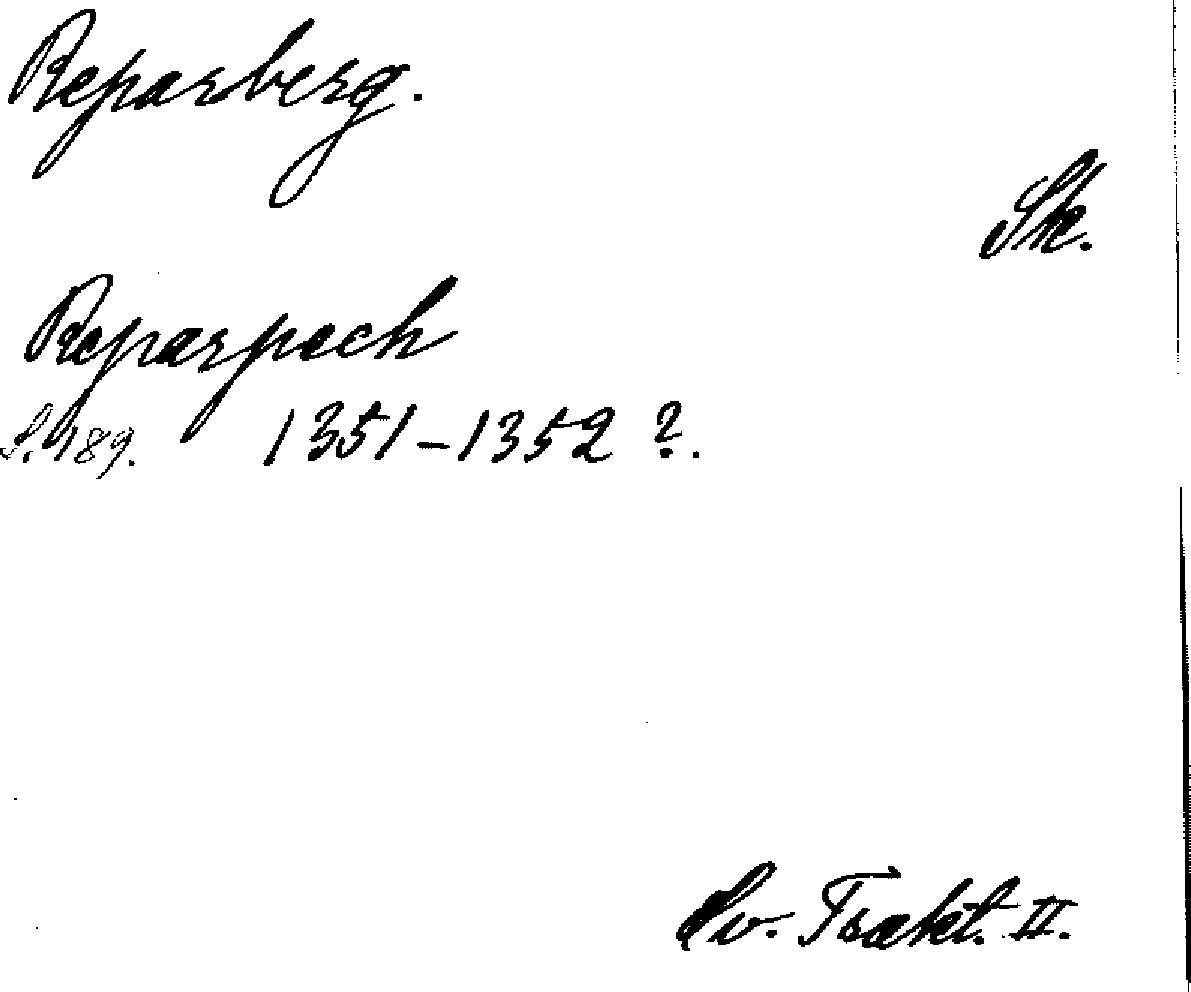 Reparberg.
Sk.
Reparpech
S. 189. 1351-1352 ?.
Sv. Trakt. II.